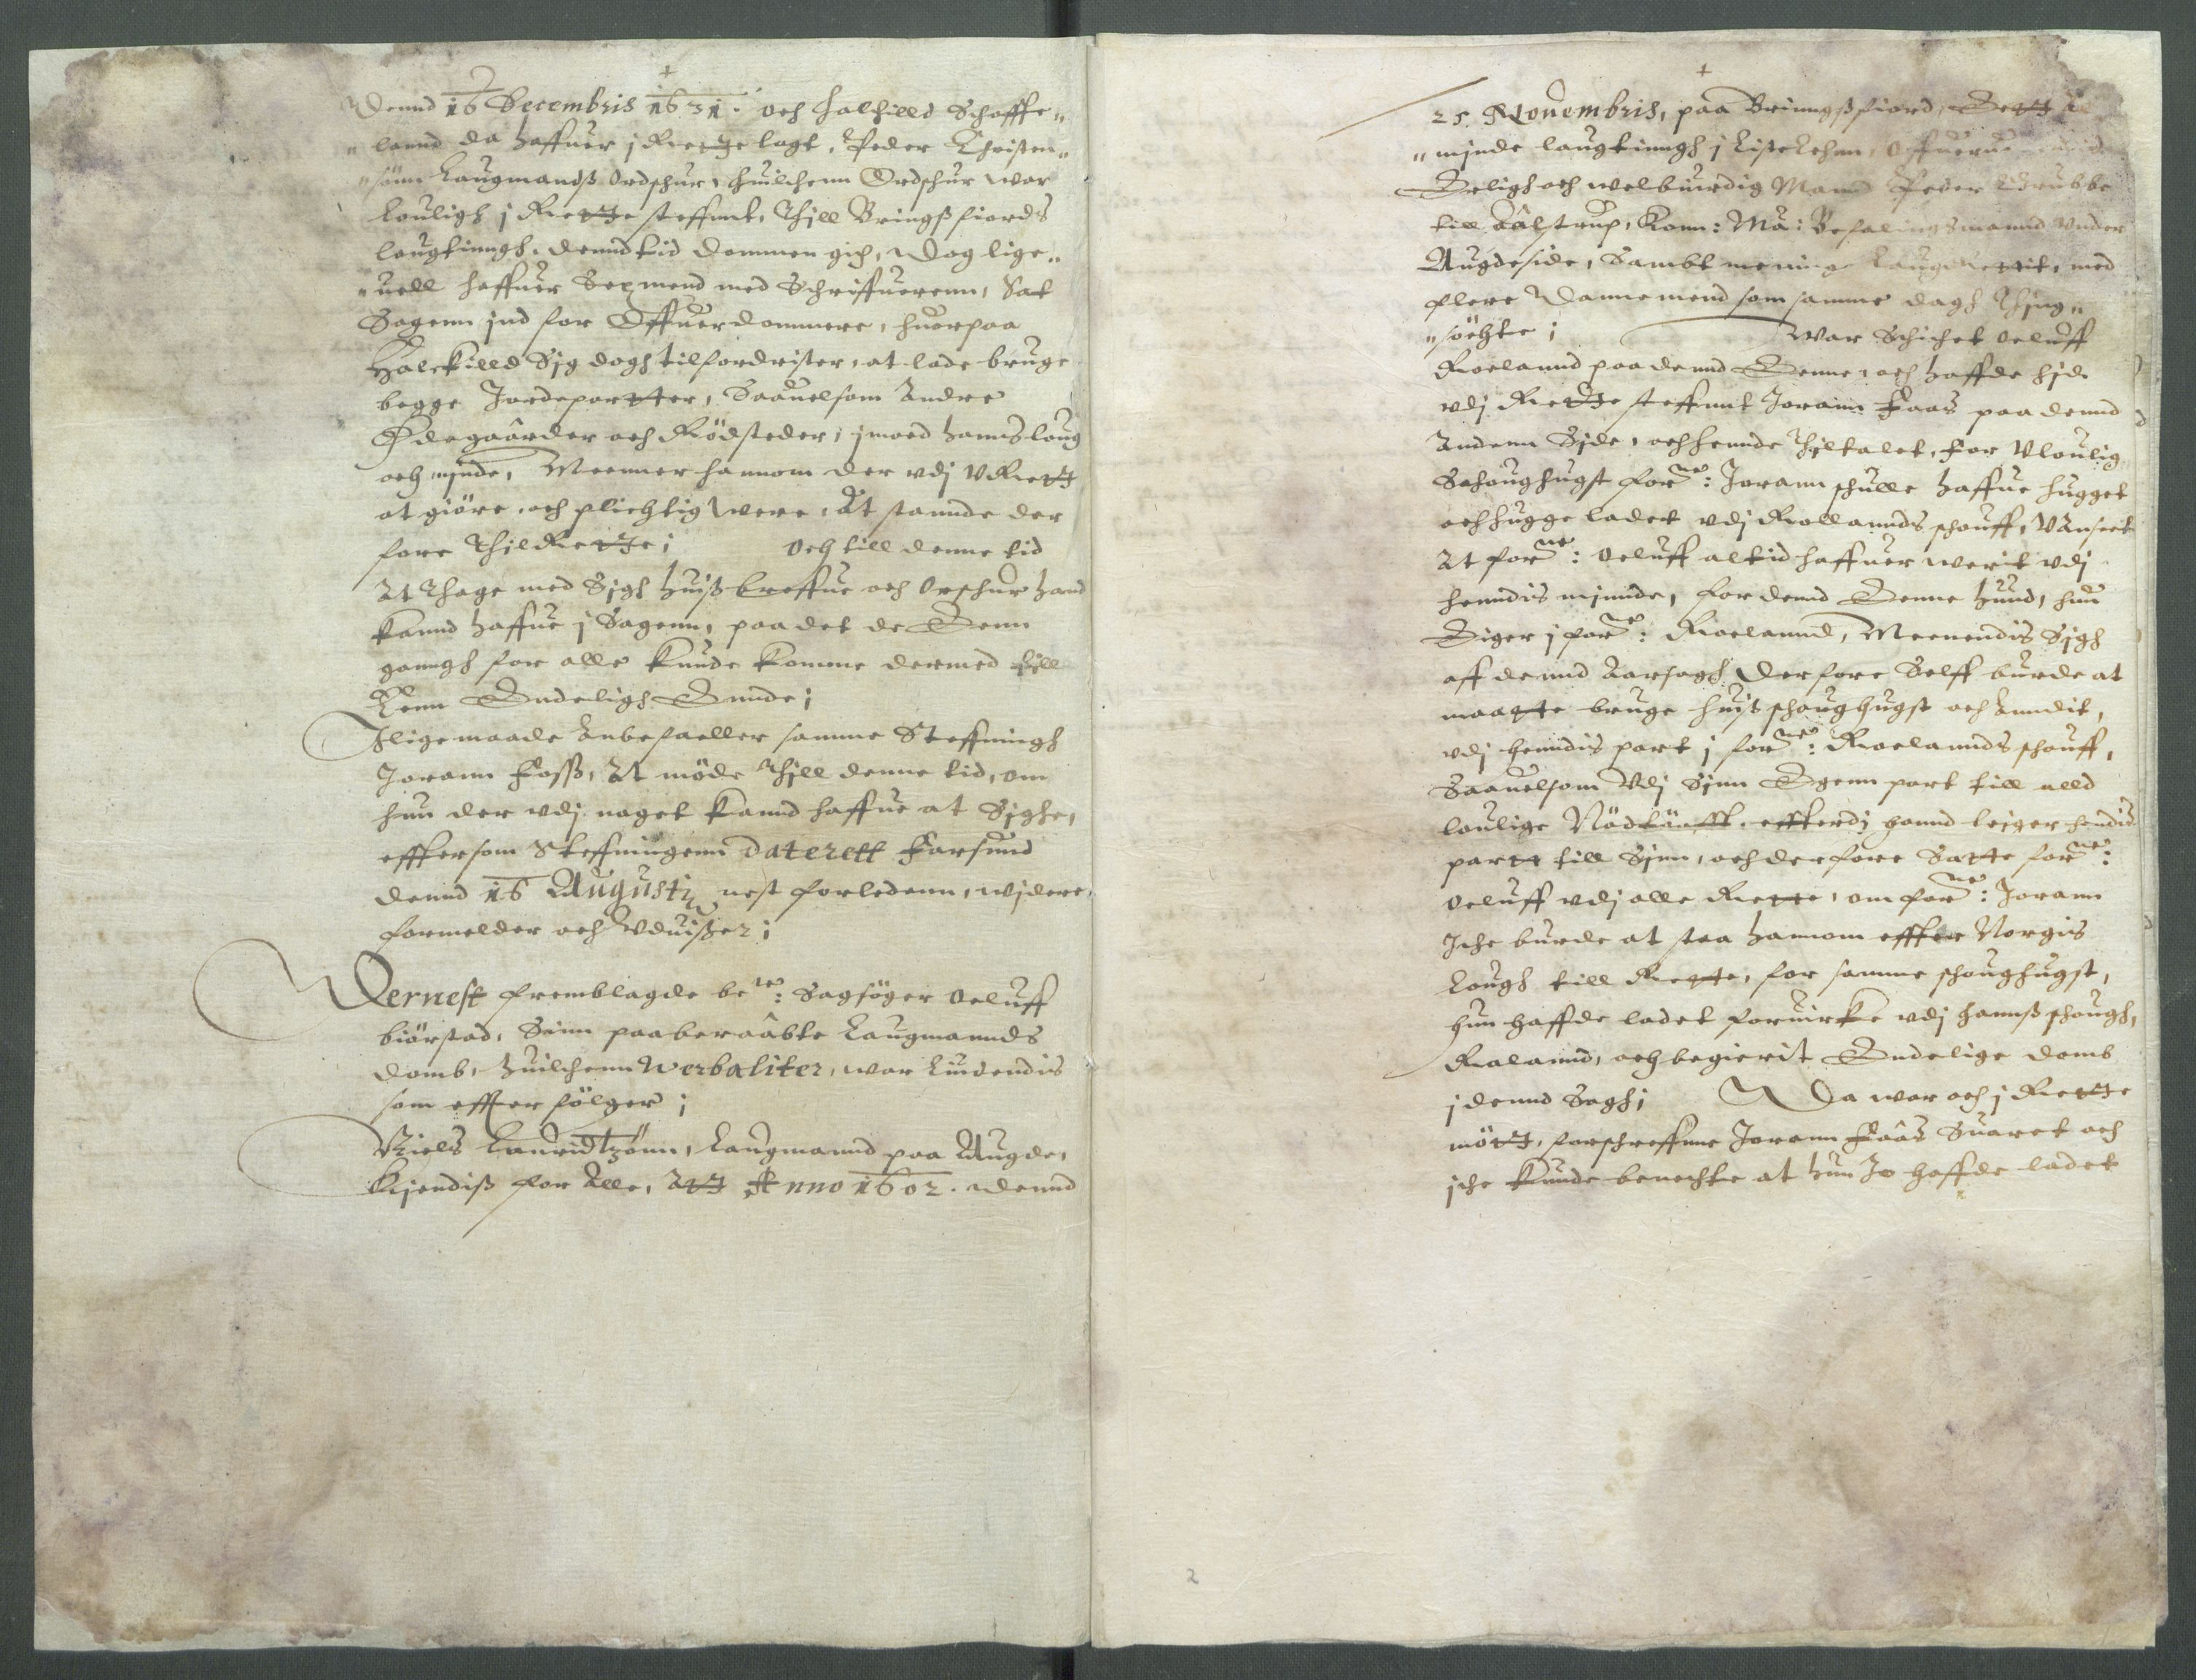 Dennd 16 Decembris 1631. och Halchilld Schoffe„
„lannd da haffuer j Rettge lagt, Peder Christen„
„sönn Laugmandß Ordschur, huilchenn Ordschur war
louligh j Rettge steffnnt, Thill Bringßfiords
laugtinngh, dennd tid dommen gich, Dog lige„
„uell haffuer Sexmend med Schriffuerenn, Sat
Sagenn ind for Offuerdommere, huorpaa
Halckilld Sig dogh tilfordrister, at lade bruge
begge Jordepartter, Saauelsom Andre
Ødegaarder och Rödsteder, imoed hanns loug
och minde, Meenner hannom der vdj VRett
at giöre, och plichtig were, At stannde der
fore Thil Rettge;         Och till denne tid
At Thage med Sigh huiß breffue och Orschur hand
kannd haffue j Sagenn, paa det de Eenn
ganngh for alle kunde komme dermed till
Eenn Endeligh Ennde;
Iligemaade Anbefaeller samme Steffningh
Jorann Foss, At möde Thill denne tid, om
hun der vdj noget kannd haffue at Sighe,
effter som Steffningenn Daterett Farsund
dennd 16 Augustj nest forledenn, widere
formelder och Vduißer;
Dernest fremblagde bete: Sagsöger Oeluff
biörstad, Sinn paaberaabte Laugmannds
domb, huilchenn Werbaliter, war Liudendis
som effter fölger;
Niels Lauridtzönn, Laugmannd paa Augde,
Kiendiß for Alle, Att Anno 1602. Dennd
25. Nouembris, paa Bringßfiord, Rett
„minde laugtinngh j Liste Lehnn, Offueruerendis
Erligh och welburdig Mannd Peder Grubbe
till Aalstrup, Konn: Ma: Befalingsmannd vnder
Augdeside, Sambt menige Laug Rettit, med
flere Dannemend som samme dagh Thing„
„söchte;         war Schichet Oeluff
Roelannd paa dennd Eenne, och haffde hid
vdj Rettge steffnnt Jorann Faas paa dennd
Andenn Side, och hennde Thiltalet, for Vlouligh
Schoughugst forne: Jorann schulle haffue hugget
och hugge ladet vdj Rollannds schouff, VAnseet
At forne: Oeluff altid haffuer werit vdj
henndis minnde, for dennd Eenne hund, hun
Eiger j forne: Roelannd, Meenendis Sigh
aff dennd Aarsagh Derfore Selff burde at
maatte bruge huiß schoughugst och Anndit,
vdj henndis part j forne: Roelannds schouff,
Saauelsom Vdj Sinn Egenn part till alld
loulige Nödtörfft. effterdj hannd leiger hendis
partt till Sinn, och derfore Satte forne:
Oeluff vdj alle Rette, om forne: Jorann
Iche burde at staa hannom effter Norgis
Lough till Rette, for samme schoughugst,
hun haffde ladet foruirke vdj hannß schough,
Ralannd, och begierit Endelige domb
j dennd Sagh;         Da war och j Rettge
mött, forschreffne Jorann Faas Suaret och
iche kunde benechte at hun Jo haffde ladet
2